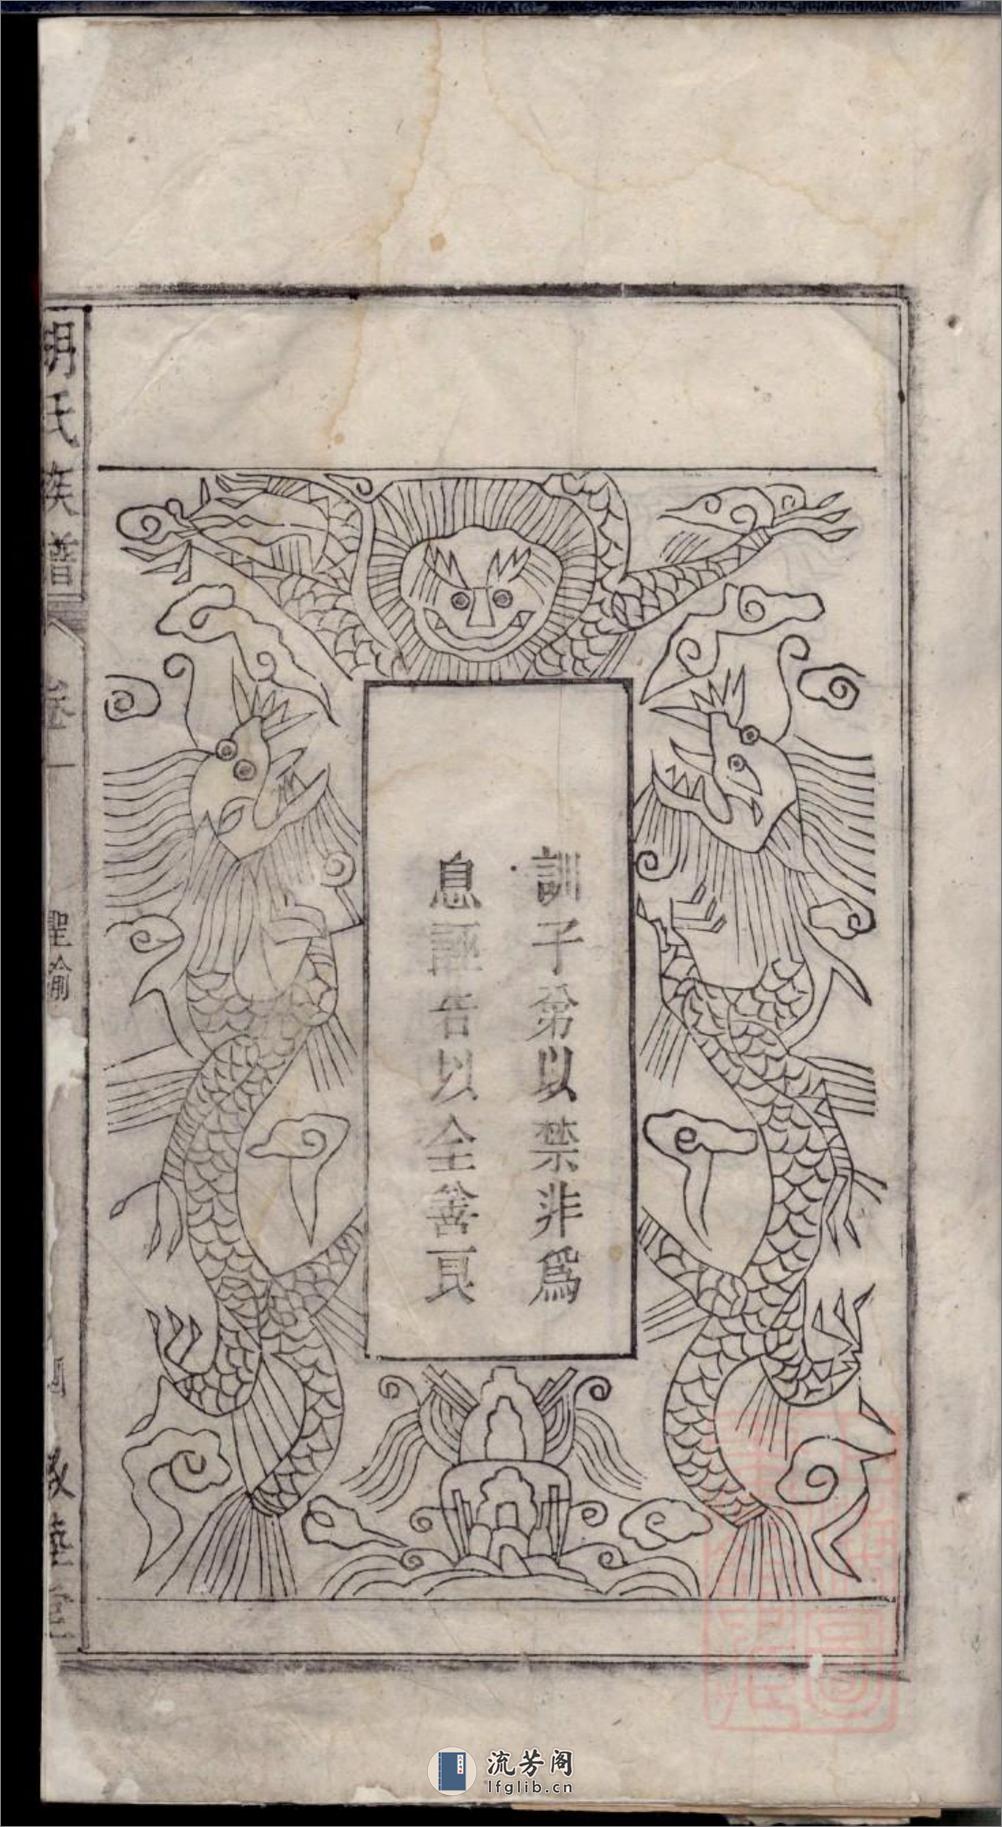 訓子弟以禁非爲
息誣告以全善良
胡氏族譜
卷一
聖諭
敦睦堂
流芳阁
lfglib.cn